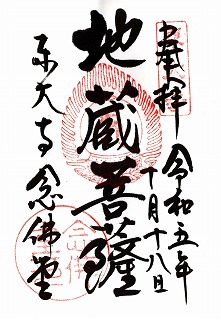 奉拝
令和五年
十月十八日
地蔵菩薩
東大寺念佛堂